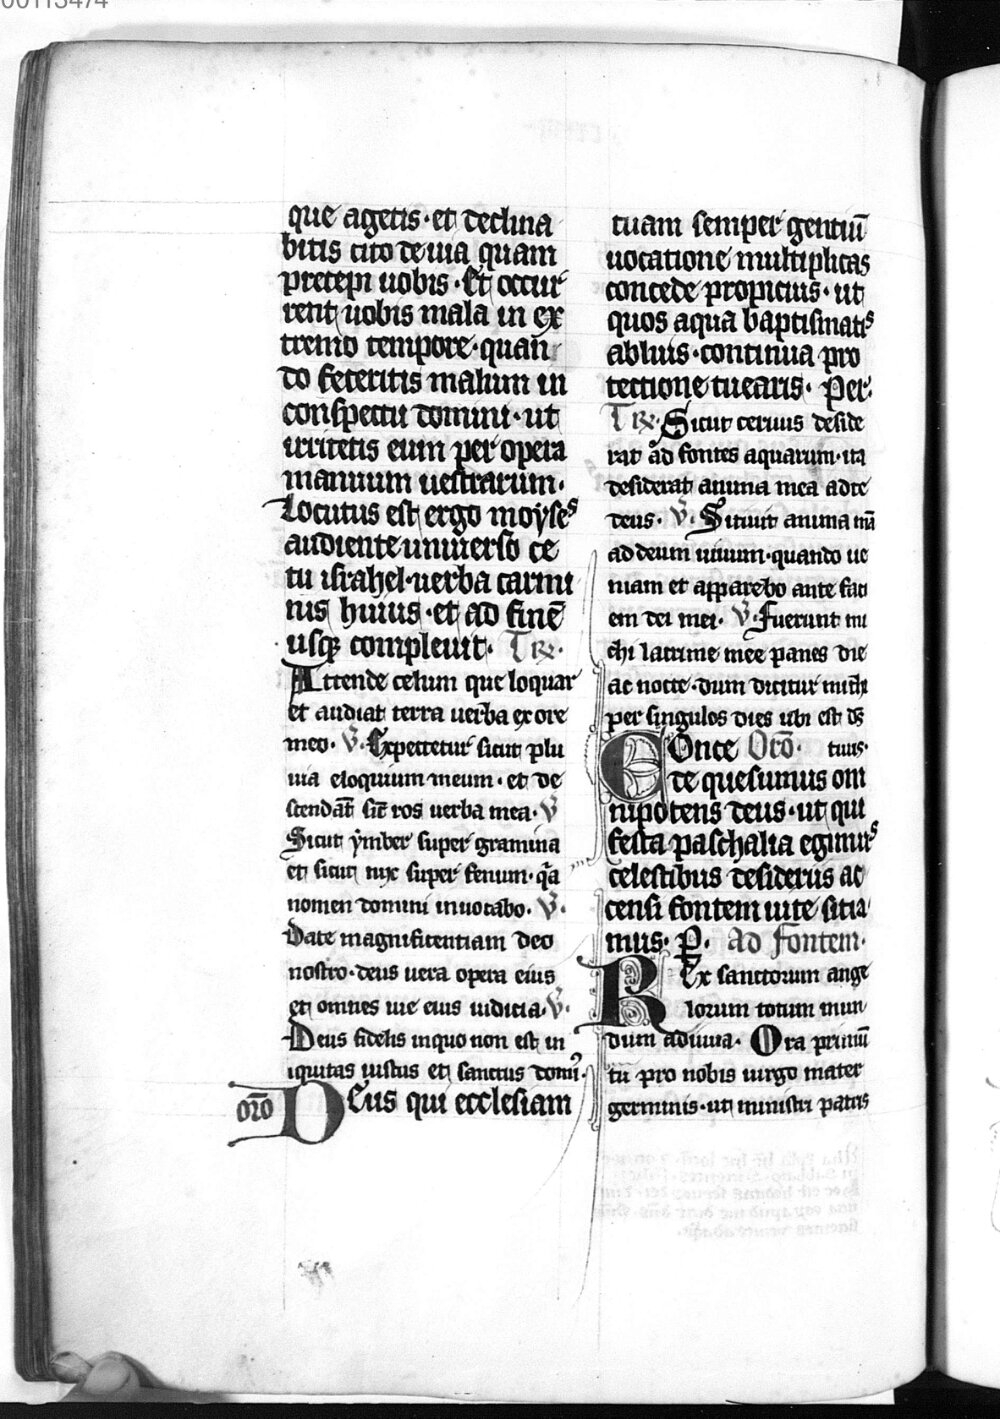 00113474
que agetis · et declina
bitis cito de uia quam
precepi uobis · Et occur
rent uobis mala in ex
tremo tempore · quan
do feceritis malum in
conspectu domini · ut
irritetis eum per opera
manuum uestrarum ·
Locutus est ergo moyses
audiente uniuerso ce
tu israhel · uerba carmi
nis huius · et ad finē
usqꝫ compleuit · Trꝛ ·
Attende celum que loquar
et audiat terra uerba ex ore
meo · V̄ · Expectetur sicut plu
uia eloquium meum · et de
scendāt sic̄ ros uerba mea · V̄
Sicut ymber super gramina
et sicut nix super fenum · q̄a
nomen domini inuocabo · V̄ ·
Date magnificentiam deo
nostro · deus uera opera eius
et omnes uie eius iudicia · V̄ ·
Deus fidelis in quo non est in
iquitas iustus et sanctus domiꝰ
or̄o Deus qui ecclesiam
tuam semper gentiū
uocatione multiplicas
concede propicius · ut
quos aqua baptismatis
abluis · continua pro
tectione tuearis · Per ·
Trꝛ · Sicut ceruus deside
rat ad fontes aquarum · ita
desiderat anima mea ad te
deus · V̄ · Sitiuit anima mā
ad deum uiuum · quando ue
niam et apparebo ante faci
em dei mei · V̄ · Fuerunt mi
chi lacrime mee panes die
ac nocte · dum dicitur michi
per singulos dies ubi est ds̄
Conce Orō · tuus ·
de quesumus om
nipotens deus · ut qui
festa paschalia egimus
celestibus desideriis ac
censi fontem uite sitia
mus · P · Ad fontem ·
Rex sanctorum ange
lorum totum mun
dum adiuua · Ora primū
tu pro nobis uirgo mater
germinis · ut ministri patris